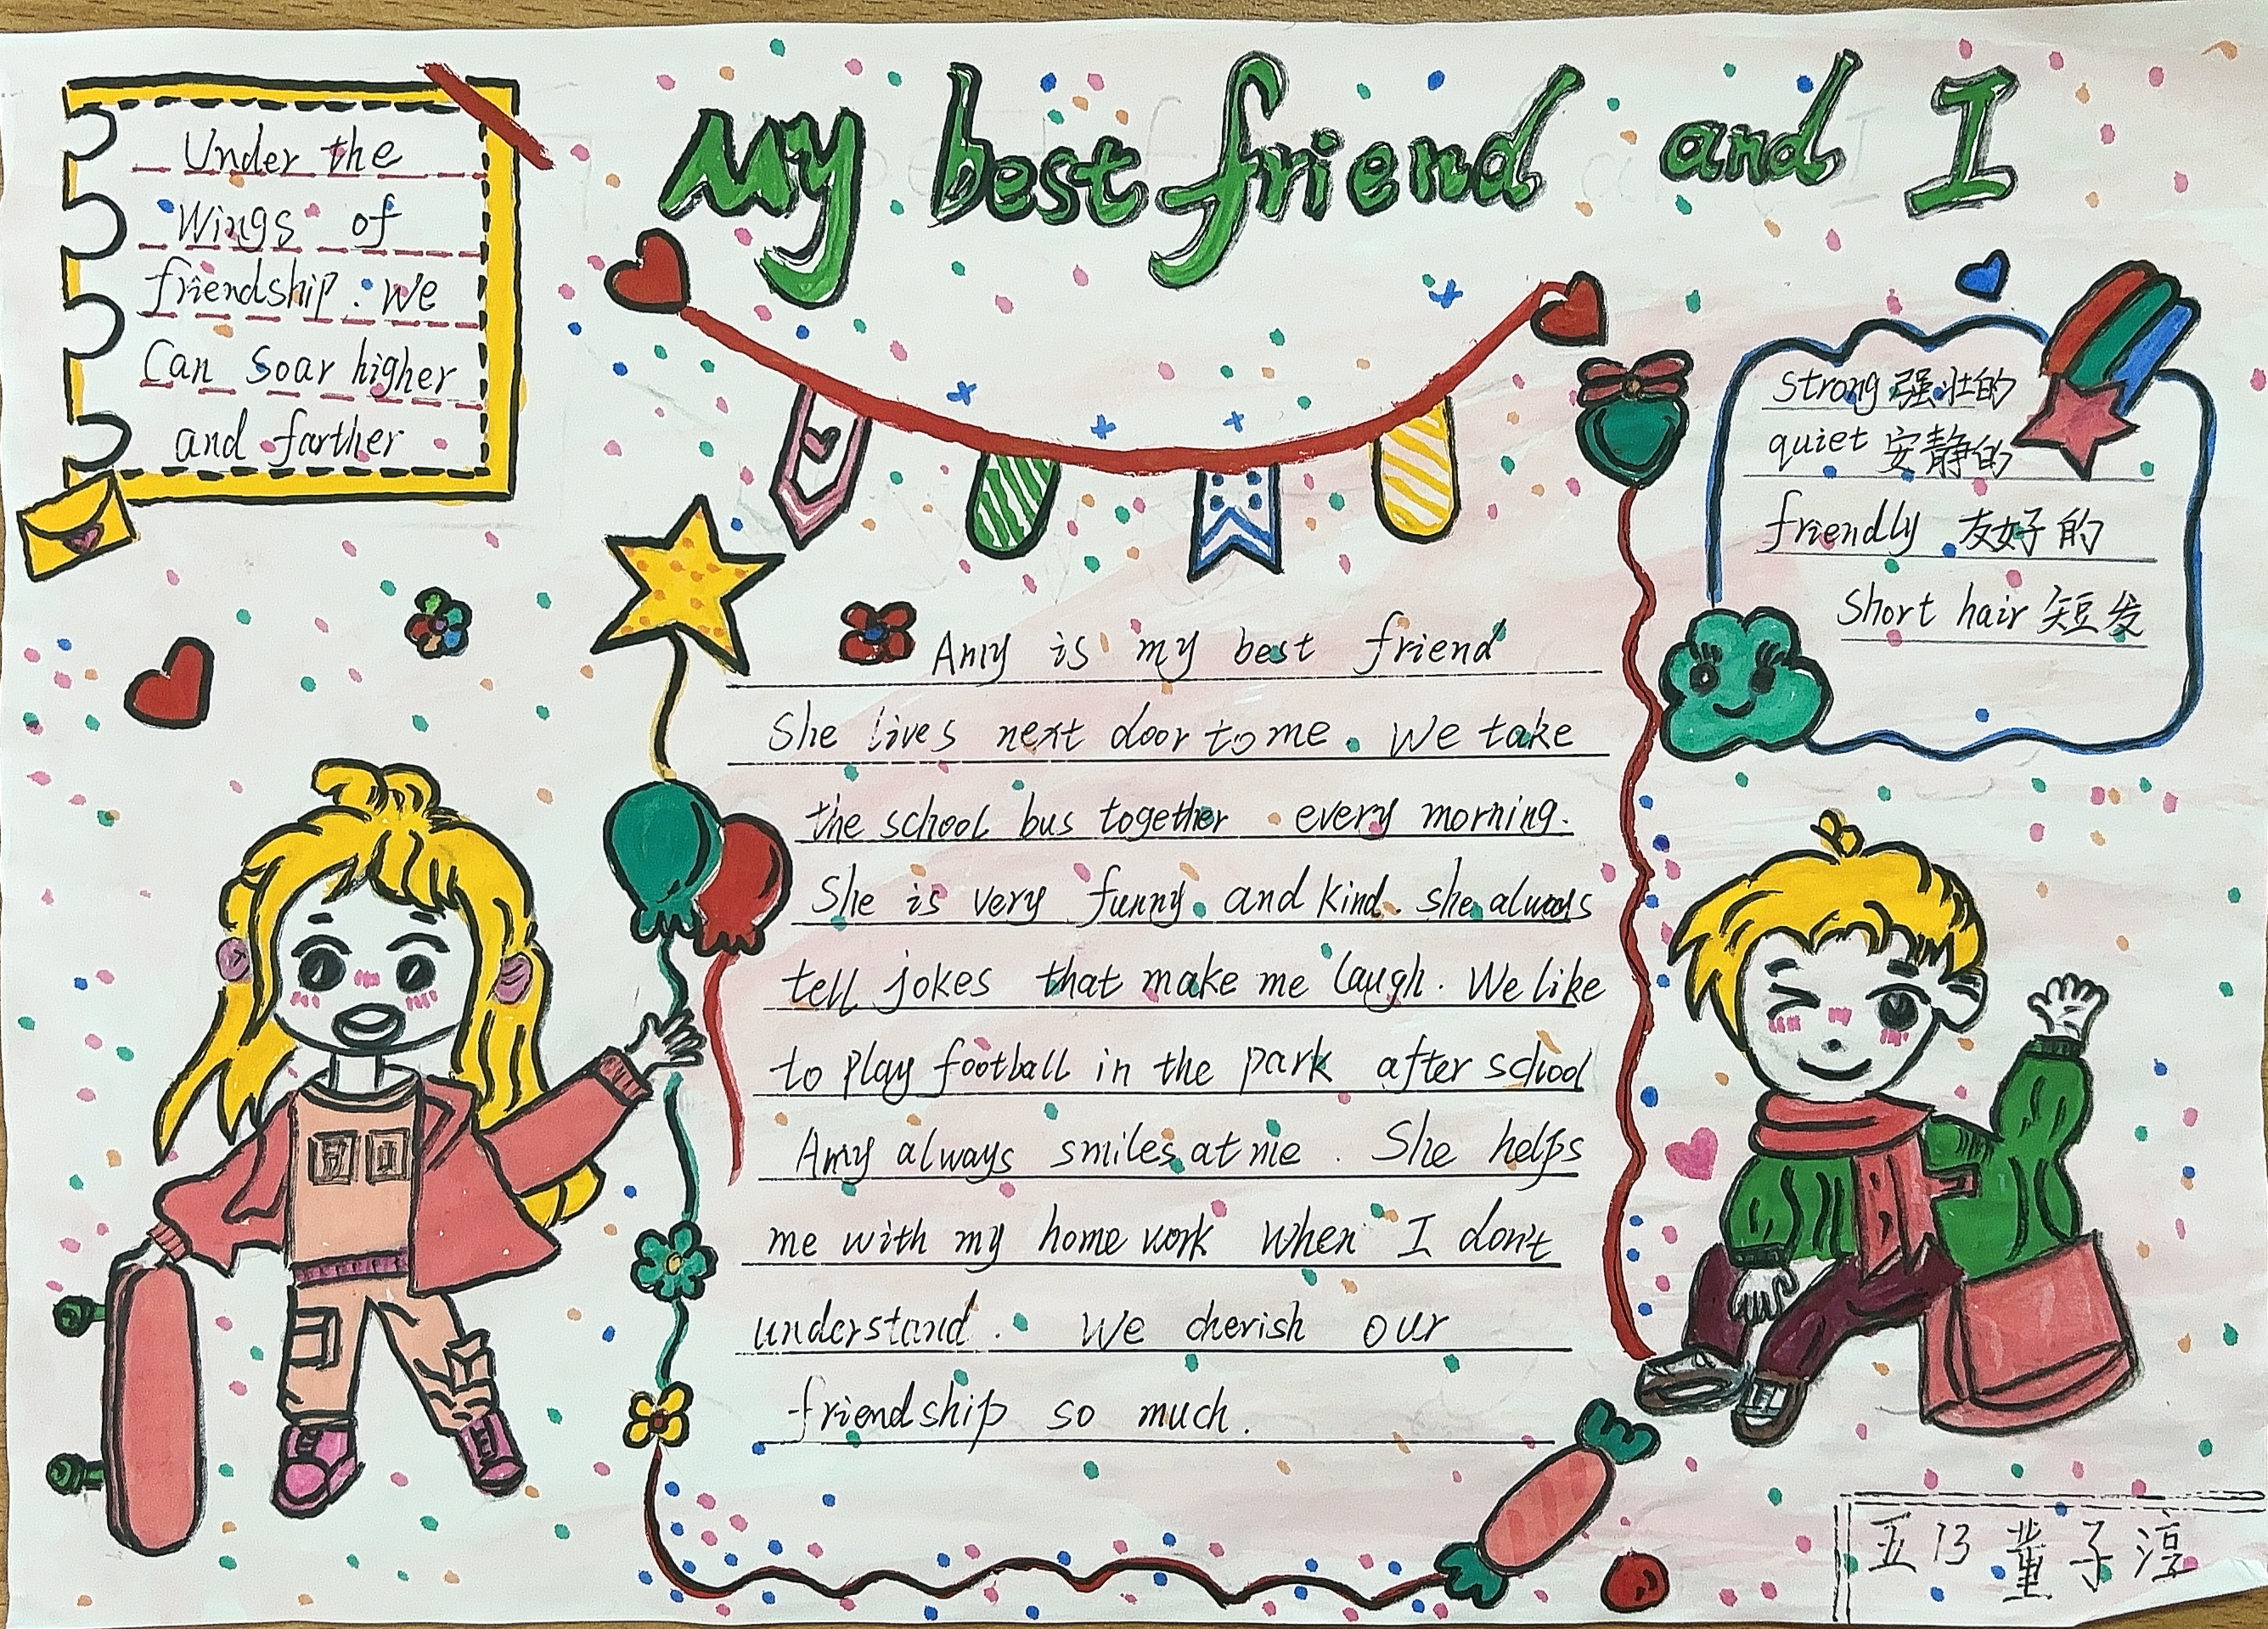 My best friend and I
Under the
Wings of
friendship. we
Can Soar higher
and farther
strong 强壮的
quiet 安静的
friendly 友好的
Short hair 短发
Amy is my best friend
She lives next door to me. We take
the school bus together every morning.
She is very funny and kind. she always
tell jokes that make me laugh. We like
to play football in the park after school
Amy always smiles at me. She helps
me with my home work when I don't
understand. We cherish our
friendship so much.
五13 董子淳